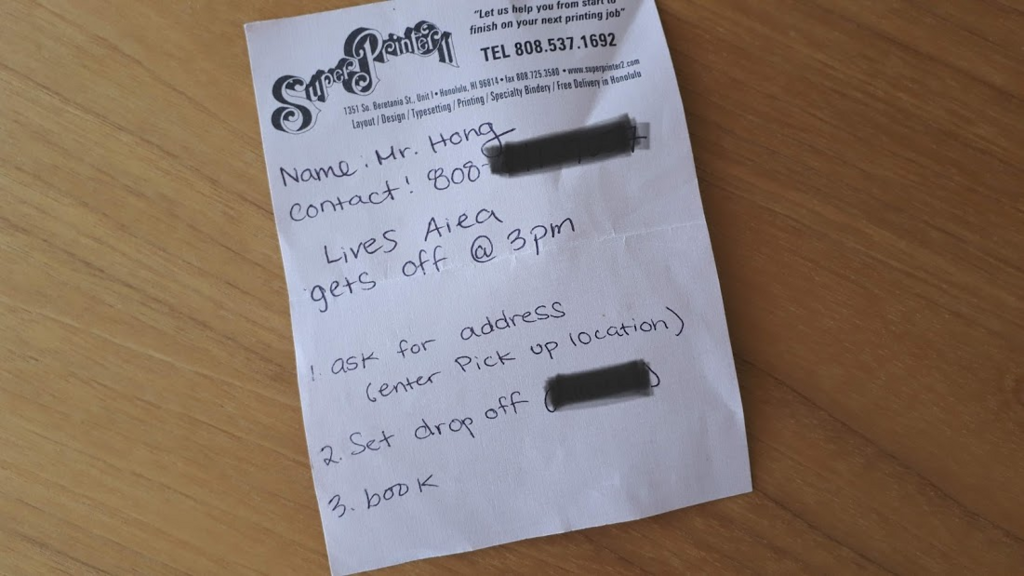 Super Printer II
"Let us help you from start to
finish on your next printing job"
TEL 808.537.1692
1351 So. Beretania St., Unit I • Honolulu, HI 96814 • fax 808.725.3580 • www.superprinter2.com
Layout / Design / Typesetting / Printing / Specialty Bindery / Free Delivery in Honolulu
Name: Mr. Hong
Contact: 808-
Lives Aiea
gets off @ 3pm
1. ask for address
(enter Pick up location)
2. Set drop off ( )
3. book